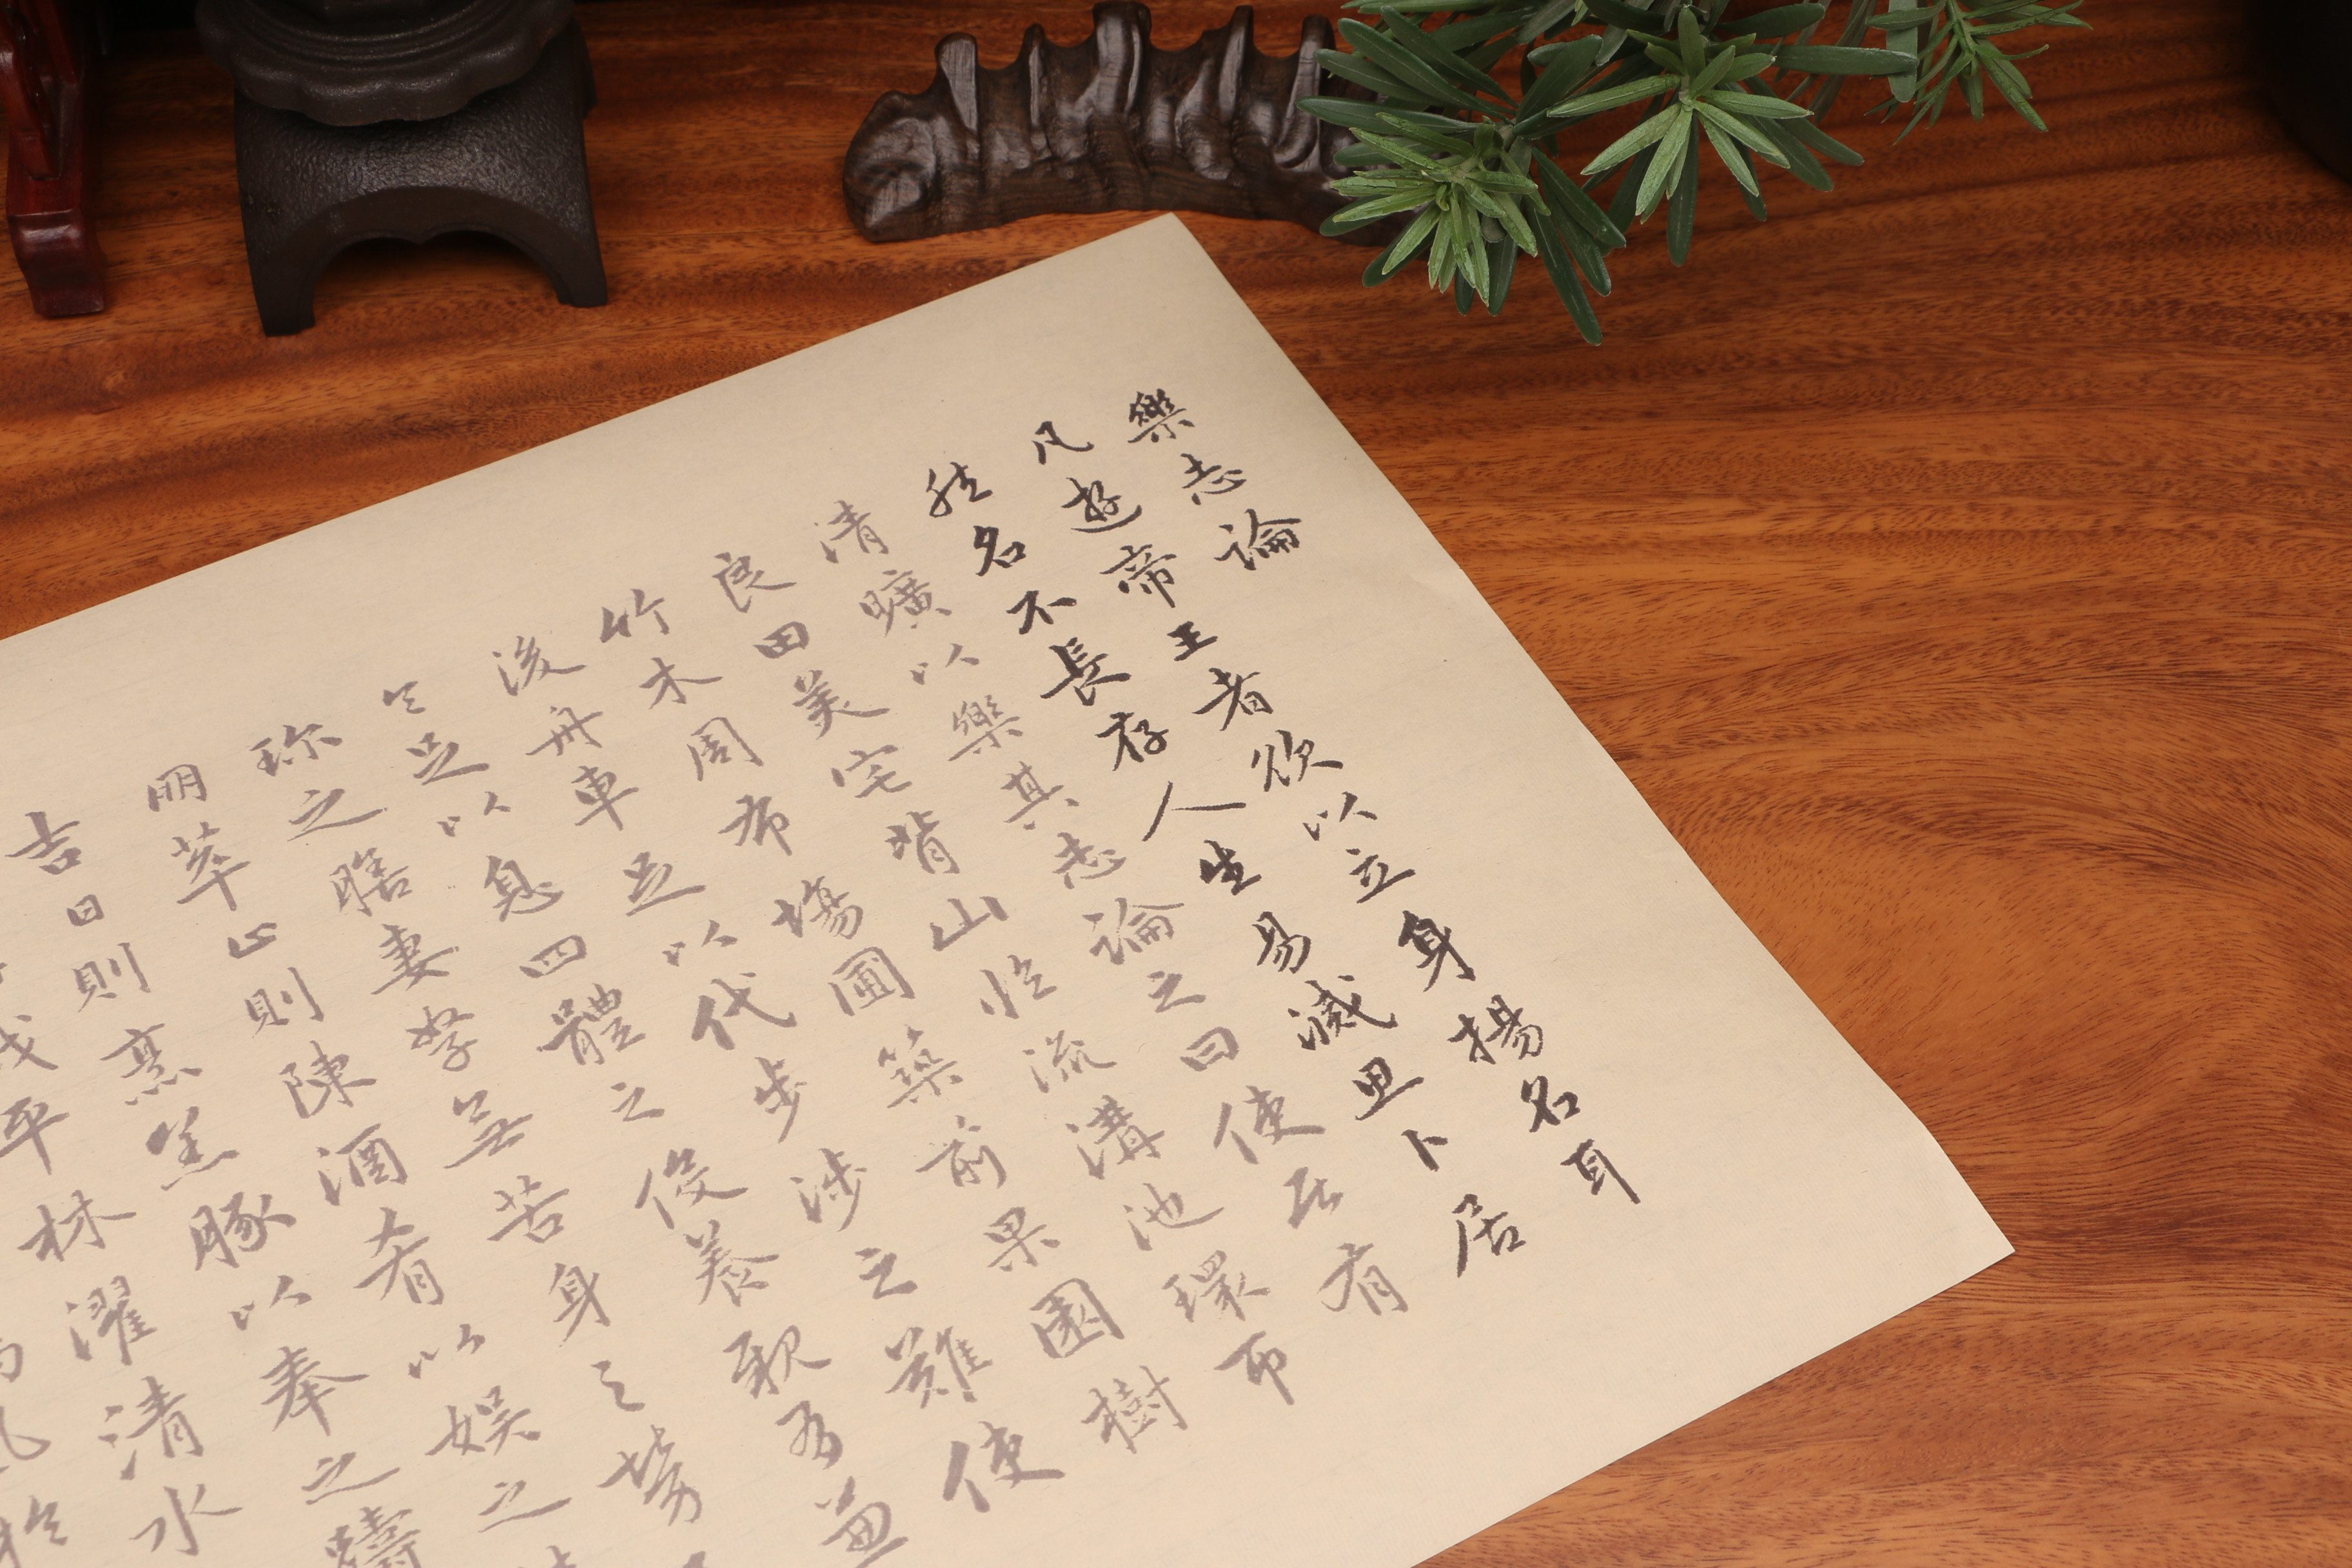 樂志論
凡遊帝王者欲以立身揚名耳
名不長存人生易滅思卜居
清曠以樂其志論之曰使居有
良田美宅背山臨流溝池環帀
竹木周布場圃築前果園樹
後舟車足以代步涉之難使
令足以息四體之役養親有兼
珍之膳妻孥無苦身之勞
朋萃止則陳酒肴以娛之
吉日則烹羔豚以奉之躊
平林濯清水